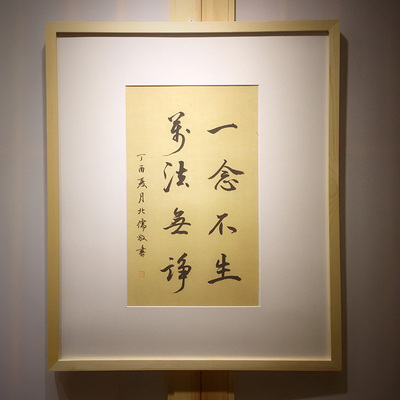 一念不生
萬法無諍
丁酉夏月北儒敬書